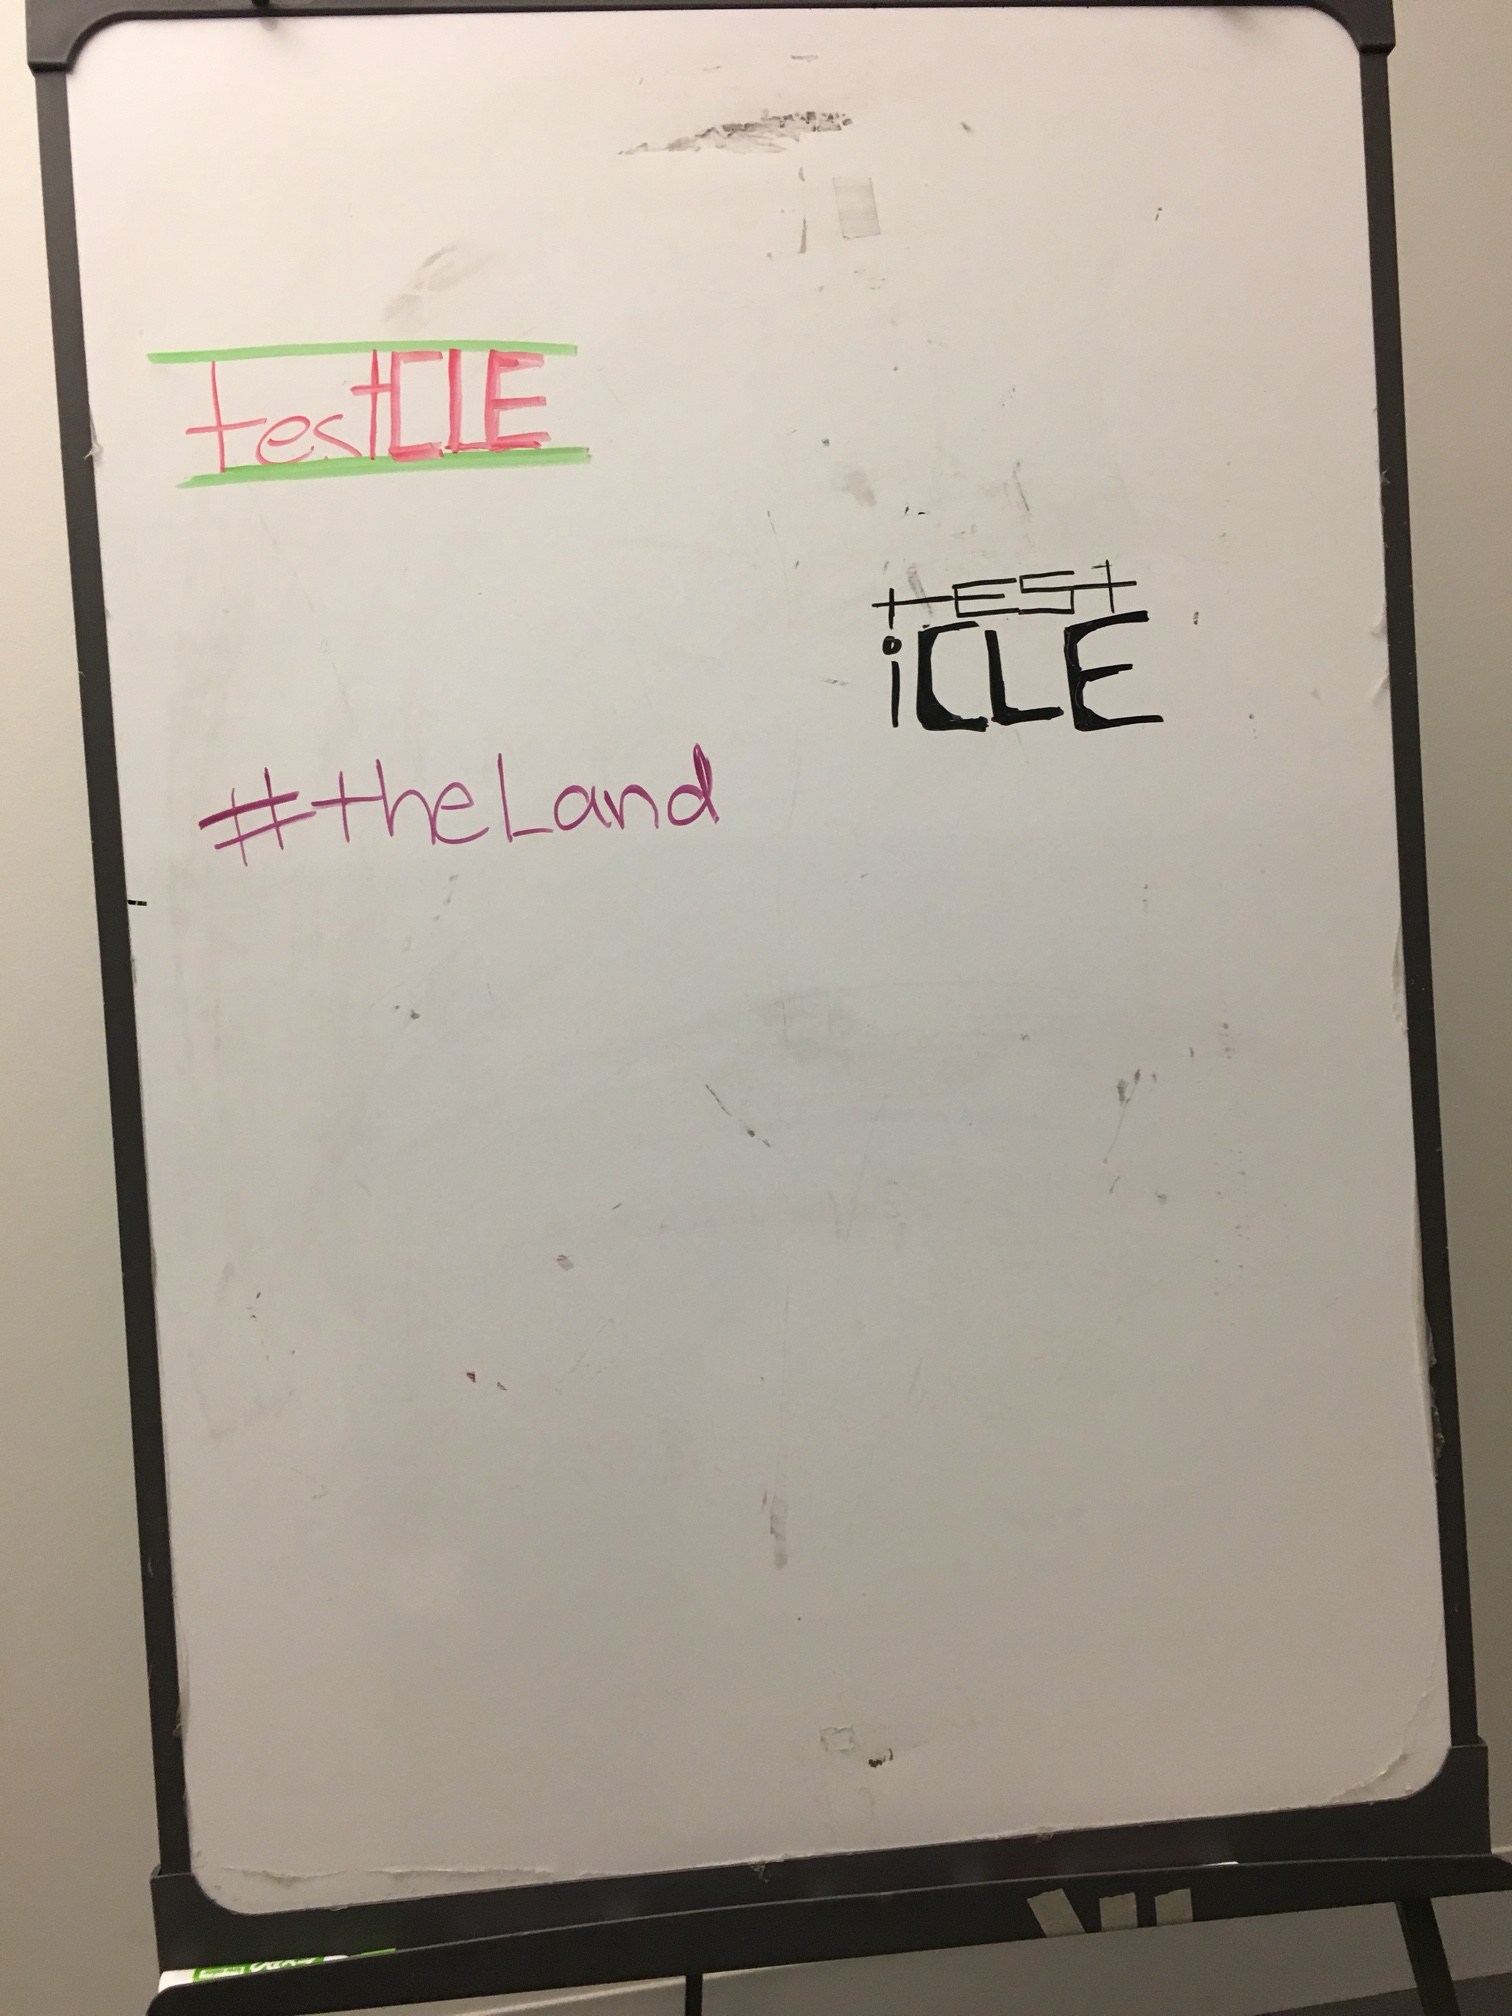 testCLE
tEST
iCLE
#theLand